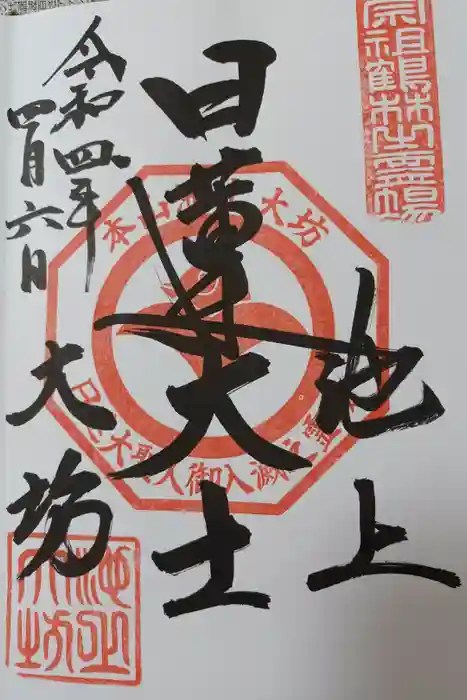 宗祖鶴林之霊場
池上
日蓮大士
令和四年
四月六日
大坊
本山 大坊
日蓮大聖人御入滅
池上大坊